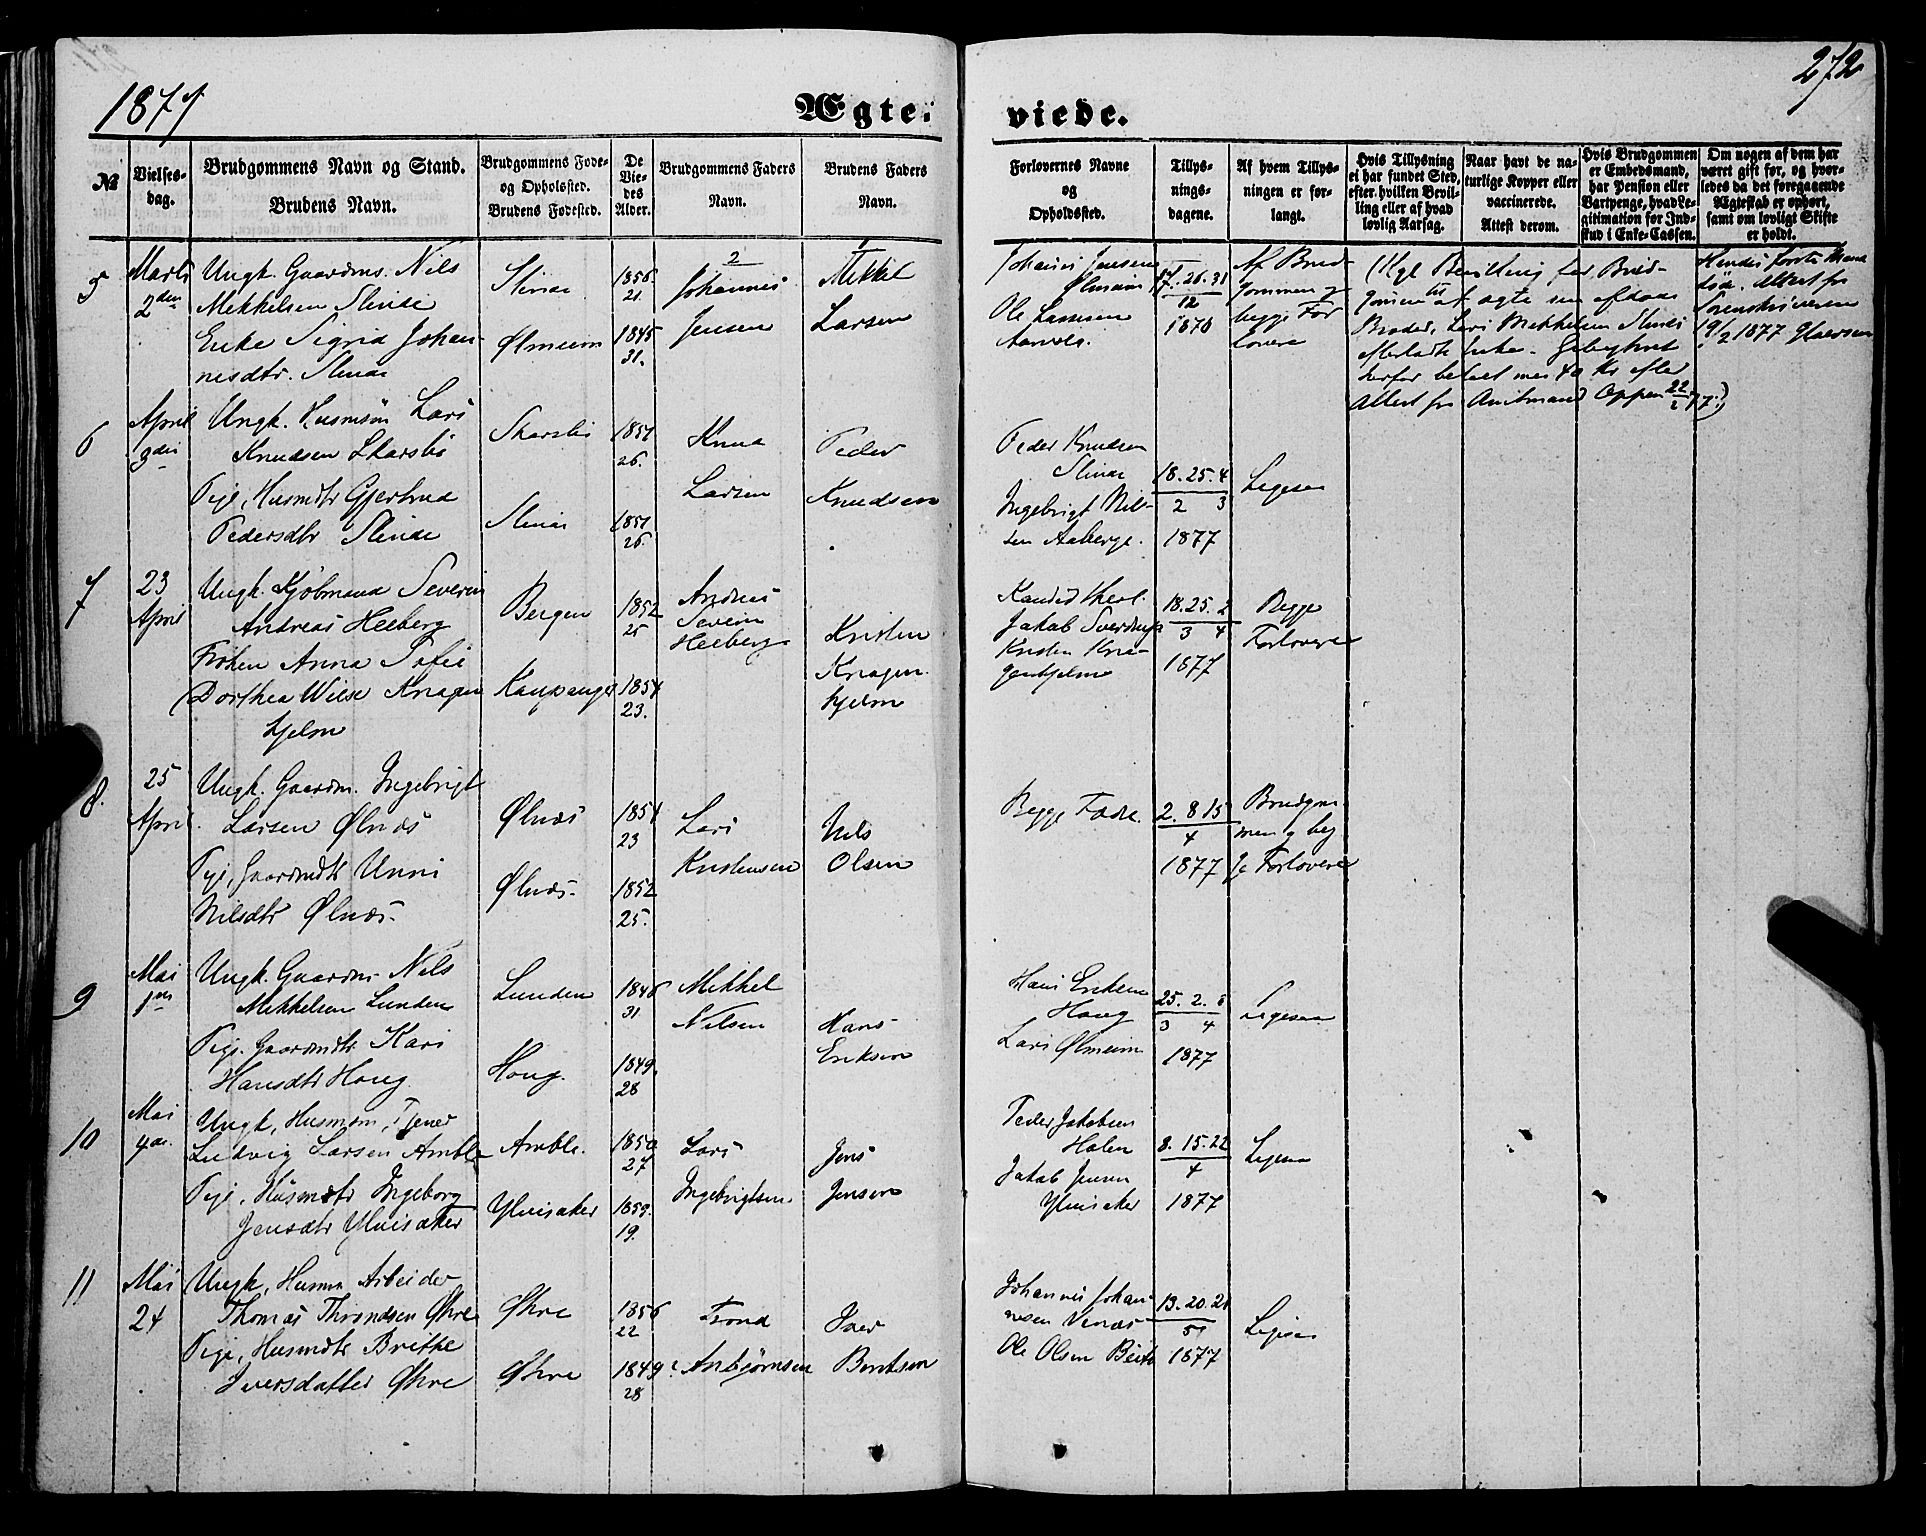 1877
272
Ægte=
viede.
№
Vielses-
dag.
Brudgommens Navn og Stand.
Brudens Navn.
Brudgommens Føde-
og Opholdssted.
Brudens Fødested.
De
Vie-
des
Alder.
Brudgommens Faders
Navn.
Brudens Faders
Navn.
Forlovernes Navne
og
Opholdssted.
Tillys-
nings-
dagene.
Af hvem Tillys-
ningen er for-
langt.
Hvis Tillysning
ei har fundet Sted,
efter hvilken Bevil-
ling eller af hvad
lovlig Aarsag.
Naar havt de na-
turlige Kopper eller
vaccinerede.
Attest derom.
Hvis Brudgommen
er Embedsmand,
har Pension eller
Vartpenge, hvad Le-
gitimation for Ind-
skud i Enke-Cassen.
Om nogen af dem har
været gift før, og hvor-
ledes da det foregaaende
Ægteskab er ophørt,
samt om lovligt Skifte
er holdt.
5
Marts
2den
Ungk. Gaardm. Nils
Mekkelsen Slinde
Enke Sigrid Johan-
nesdtr. Slinde
Slinde
Ølmeim
1856
21.
1845
31.
2
Johannes
Jensen
Mekkel
Larsen
Johannes Jensen
Ølmeim
Ole Lassesen
17. 26. 31
12
1876
Af Brud-
gommen og
begge For
lovere
(Kgl. Bevilling for Brud-
gommen til at ægte sin afdøde
Broder, Lars Mekkelsen Slindes
efterladte Enke. Gebyhret
herfor betalt med 40 Kr efter
Attest fra Amtmand Oppen 22/2 77.)
Hendes første Mand
død. Attest fra
Sorenskriveren
19/2 1877
6
April
3die
Ungk. Husmsøn Lars
Knudsen Skarsbø
Pige, Husmdtr Gjertrud
Pedersdtr Slinde
Skarsbø
Slinde
1851
26.
1851
26.
Knud
Larsen
Peder
Knudsen
Peder Knudsen
Slinde
Ingebrigt Nil-
sen Aaberge.
18. 25. 4
2 3
1877
Ligesaa
7
23
April
Ungk. Kjøbmand Severin
Andreas Heeberg
Frøken Anna Sofie
Dorthea Wiese Knagen
hjelm
Bergen
Kaupanger
1852
25
1854
23.
Andreas
Severin
Heeberg
Kristen
Knagen-
hjelm
Kandid theol.
Jakob Sverdrup
Kristen Kna-
genhjelm
18. 25. 2
3 4
1877
Begge
Forlovere
8.
25
April.
Ungk. Gaardm. Ingebrigt
Larsen Ølnæs
Pige, Gaardmdtr Unni
Nilsdtr Ølnæs.
Ølnæs
Ølnæs.
1854
23
1852
25.
Lars
Kristensen
Nils
Olsen
Begge Fædre.
2. 8 15
4
1877
Brudgom-
men og beg
ge Forlovere
9
Mai
1ste
Ungk. Gaardm. Nils
Mekkelsen Lunden
Pige. Gaardmdtr Kari
Hansdtr Houg
Lunden
Houg.
1846
31
1849.
28
Mekkel
Nilsen
Hans
Eriksen
Hans Eriksen
Houg
Lars Ølmeim
25. 2. 8
3 4
1877
Ligesaa
10
Mai
4de.
Ungk, Husmsøn, Tjener
Ludvig Larsen Amble
Pige, Husmdtr Ingeborg
Jensdtr Ylvisaker
Amble.
Ylvisaker
1850
27
1859.
19.
Lars
Ingebrigtsen
Jens
Jensen
Peder Jakobsen
Holen
Jakob Jensen
Ylvisaker
8. 15. 22
4
1877
Ligesaa
11
Mai
24
Ungk, Husmn Arbeider
Thomas Throndsen Øhre
Pige, Husmdtr Brithe
Iversdatter Øhre
Øhre
Øhre
1856
22
1849
28
Trond
Anbjørnsen
Iver
Bentsen
Johannes Johan-
nesen Venæs
Ole Olsen
13. 20. 21
5
1877
Ligesaa